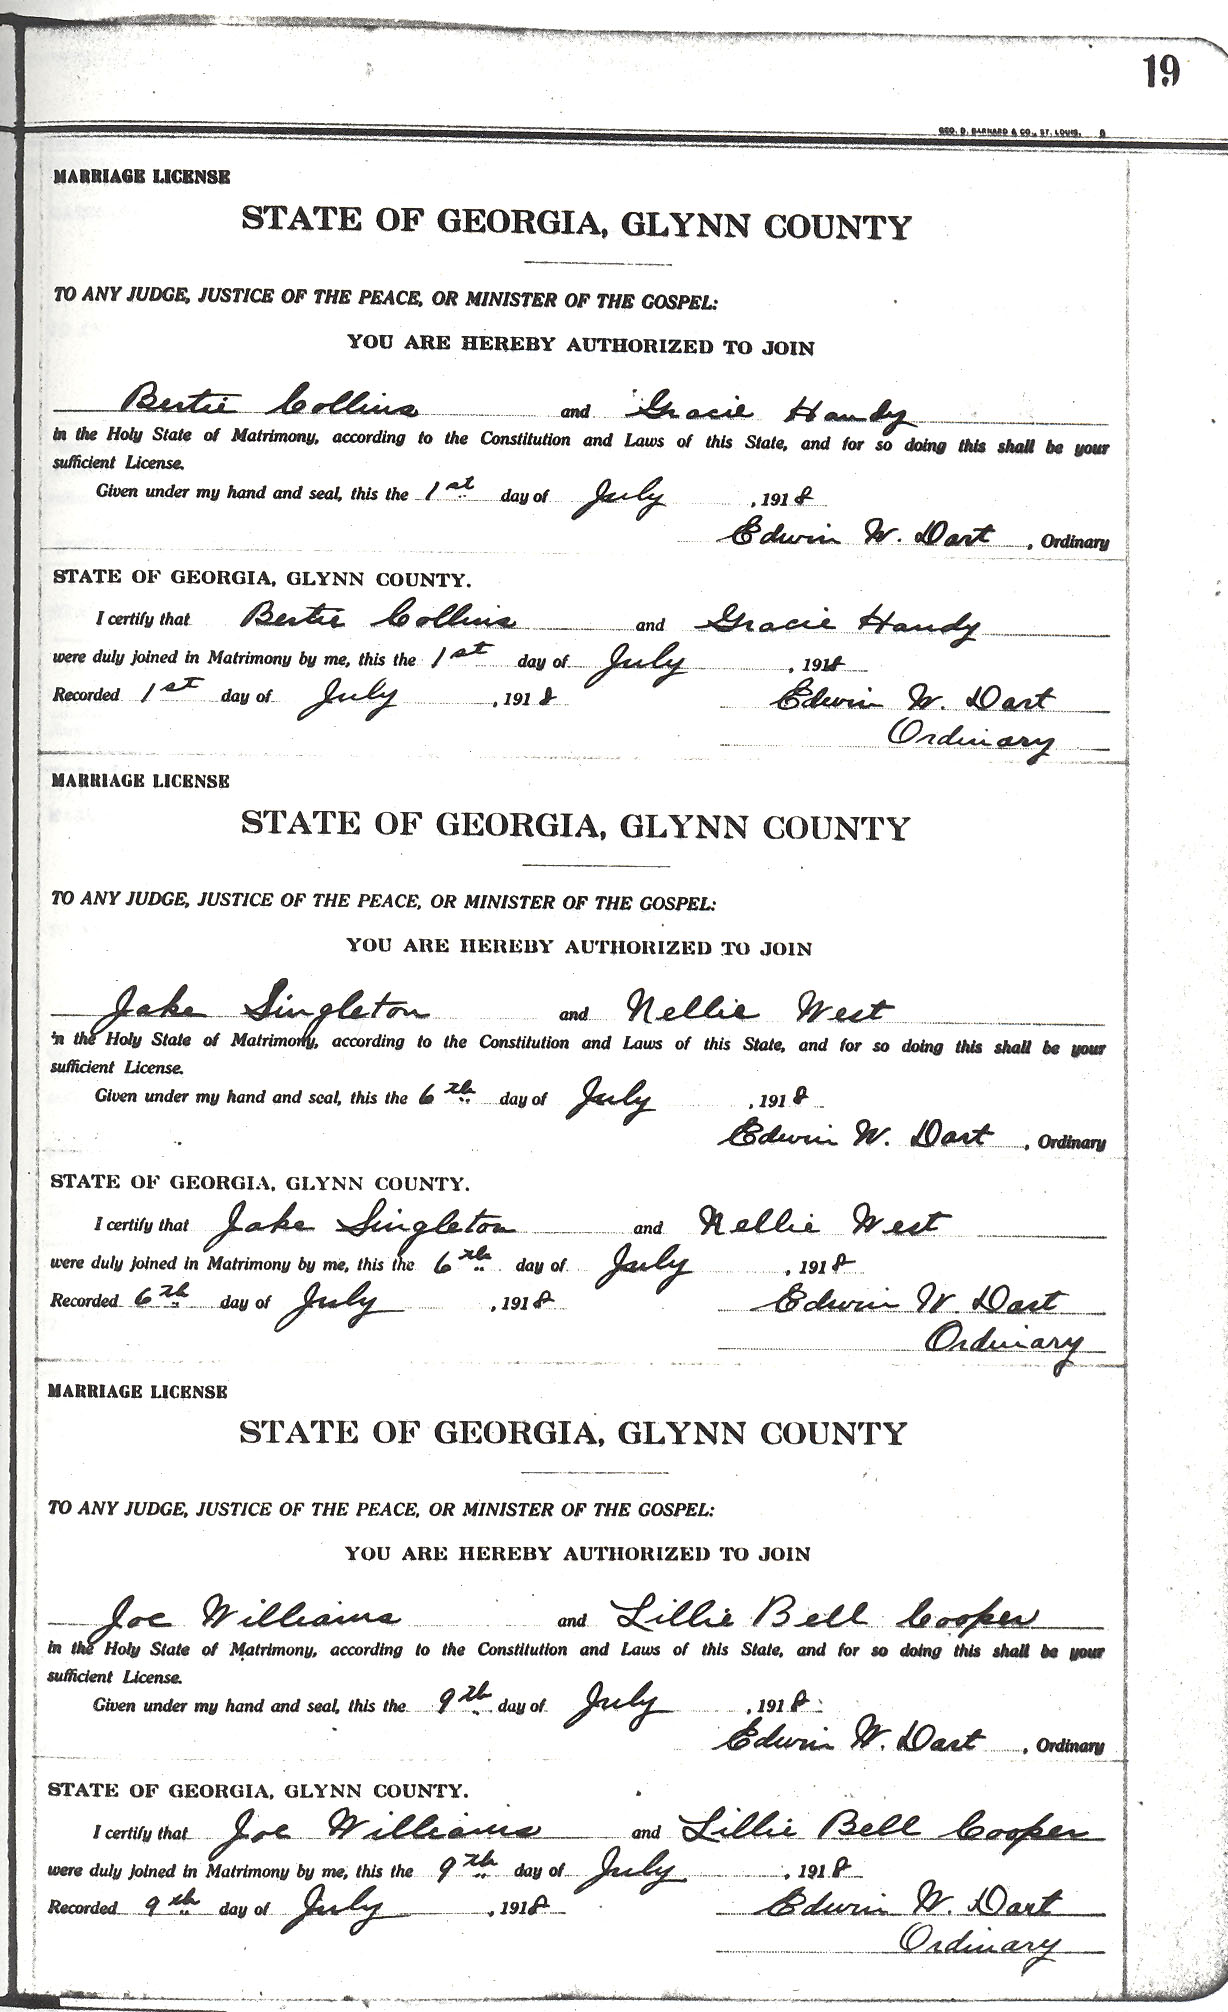 19
GEO. D. BARNARD & CO., ST. LOUIS. 8
MARRIAGE LICENSE
STATE OF GEORGIA, GLYNN COUNTY
TO ANY JUDGE, JUSTICE OF THE PEACE, OR MINISTER OF THE GOSPEL:
YOU ARE HEREBY AUTHORIZED TO JOIN
Bertie Collins and Gracie Handy
in the Holy State of Matrimony, according to the Constitution and Laws of this State, and for so doing this shall be your
sufficient License.
Given under my hand and seal, this the 1st day of July, 1918
Edwin W. Dart, Ordinary
STATE OF GEORGIA, GLYNN COUNTY.
I certify that Bertie Collins and Gracie Handy
were duly joined in Matrimony by me, this the 1st day of July, 1918
Recorded 1st day of July, 1918 Edwin W. Dart
Ordinary
MARRIAGE LICENSE
STATE OF GEORGIA, GLYNN COUNTY
TO ANY JUDGE, JUSTICE OF THE PEACE, OR MINISTER OF THE GOSPEL:
YOU ARE HEREBY AUTHORIZED TO JOIN
Jake Singleton and Nellie West
in the Holy State of Matrimony, according to the Constitution and Laws of this State, and for so doing this shall be your
sufficient License.
Given under my hand and seal, this the 6th day of July, 1918
Edwin W. Dart, Ordinary
STATE OF GEORGIA, GLYNN COUNTY.
I certify that Jake Singleton and Nellie West
were duly joined in Matrimony by me, this the 6th day of July, 1918
Recorded 6th day of July, 1918 Edwin W. Dart
Ordinary
MARRIAGE LICENSE
STATE OF GEORGIA, GLYNN COUNTY
TO ANY JUDGE, JUSTICE OF THE PEACE, OR MINISTER OF THE GOSPEL:
YOU ARE HEREBY AUTHORIZED TO JOIN
Joe Williams and Lillie Bell Cooper
in the Holy State of Matrimony, according to the Constitution and Laws of this State, and for so doing this shall be your
sufficient License.
Given under my hand and seal, this the 9th day of July, 1918
Edwin W. Dart, Ordinary
STATE OF GEORGIA, GLYNN COUNTY.
I certify that Joe Williams and Lillie Bell Cooper
were duly joined in Matrimony by me, this the 9th day of July, 1918
Recorded 9th day of July, 1918 Edwin W. Dart
Ordinary